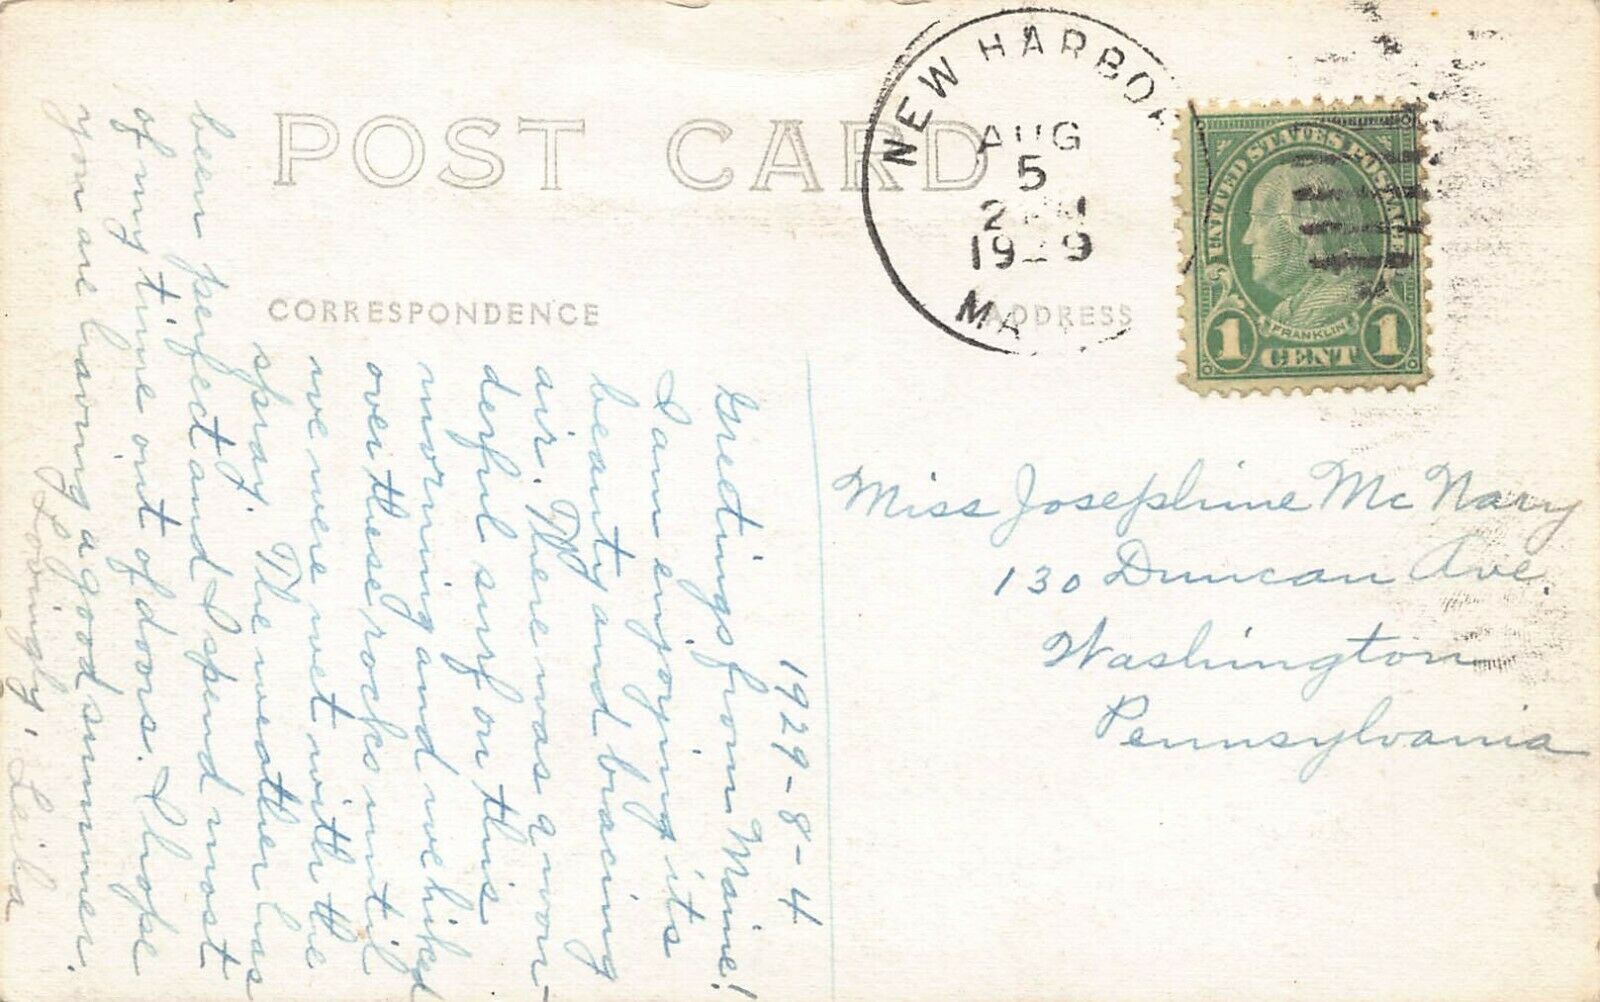 POST CARD
CORRESPONDENCE
ADDRESS
NEW HARBOR
AUG
5
1929
UNITED STATES POSTAGE
FRANKLIN
1 CENT 1
Miss Josephine McNary
130 Duncan Ave.
Washington
Pennsylvania
1929-8-4
Greetings from Maine!
I am enjoying its
beauty and bracing
air. There was a won-
derful surf on this
morning and we hiked
over these rocks until
we were wet with the
spray. The weather has
been perfect and I spend most
of my time out of doors. I hope
you are having a good summer.
Lovingly,